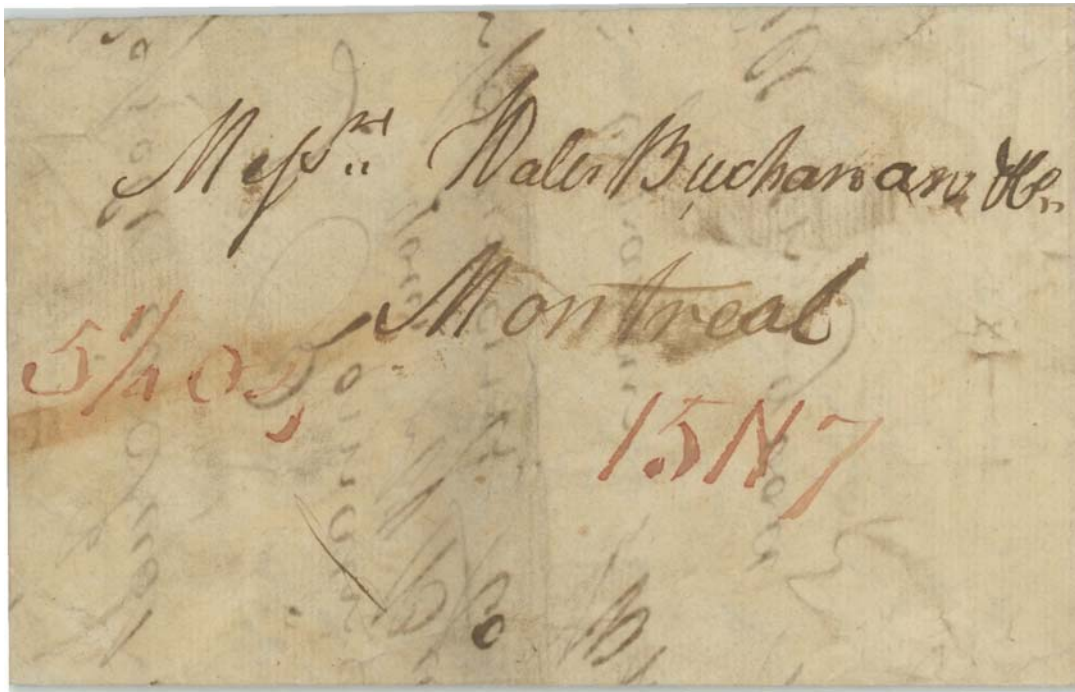 Messrs. Walter Buchanan & Co.
Montreal
5 1/4 oz
15N7